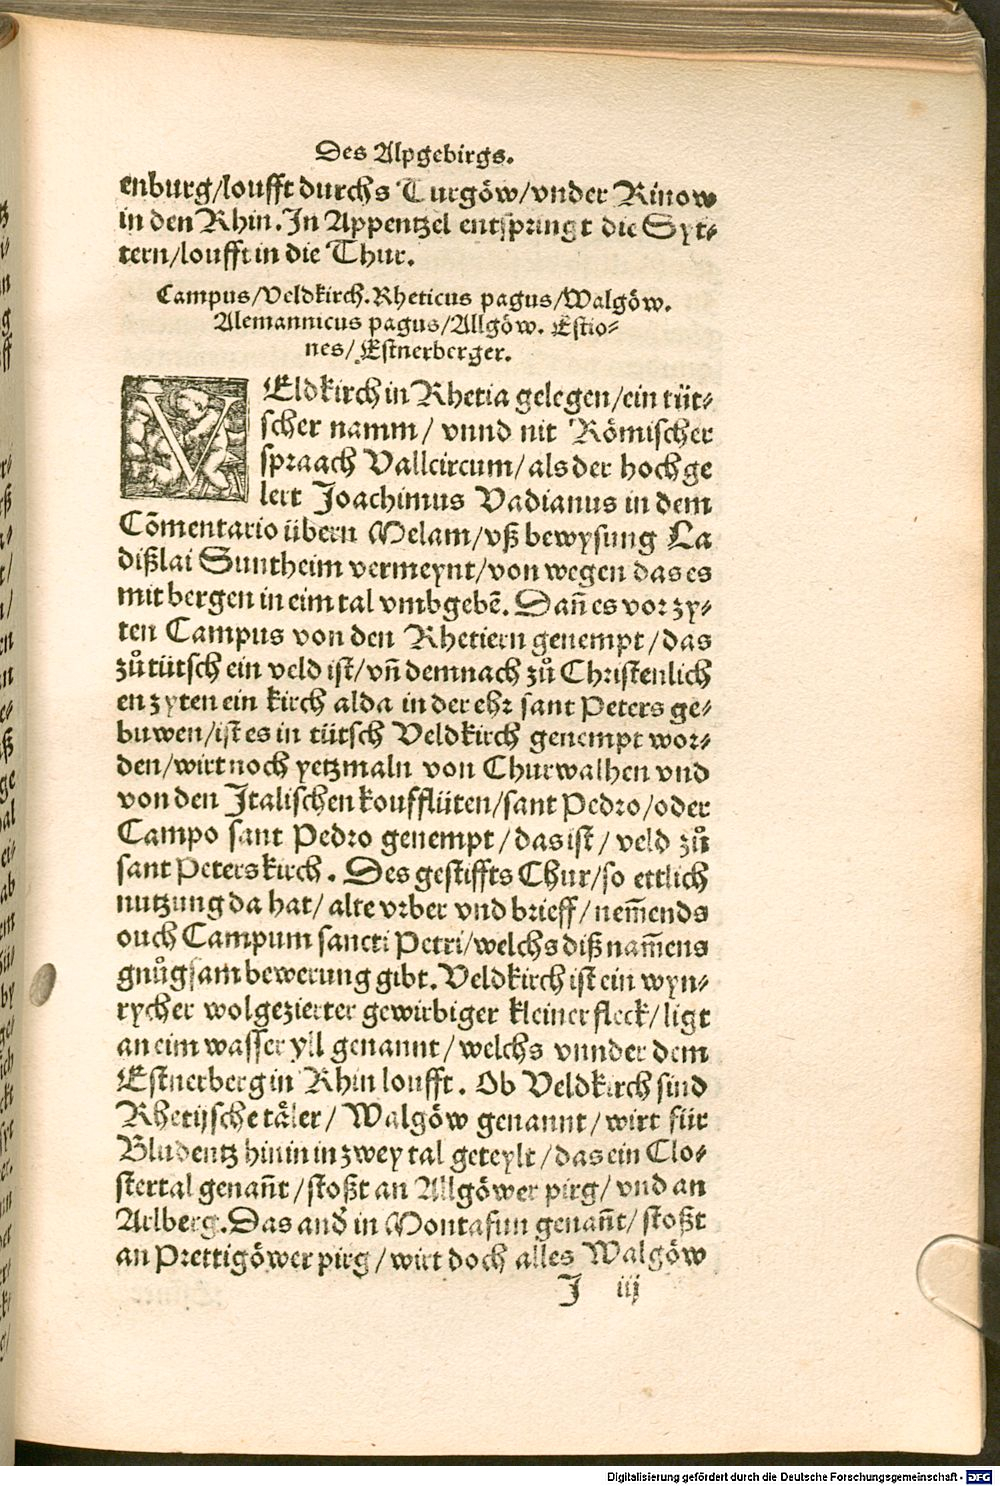 Des Alpgebirgs.
enburg/loufft durchs Turgöw/vnder Rinow
in den Rhin. In Appentzel entspringt die Syt⸗
tern/loufft in die Thur.
Campus/Veldkirch. Rheticus pagus/Walgöw.
Alemannicus pagus/Allgöw. Estio⸗
nes/Estnerberger.
VEldkirch in Rhetia gelegen/ein tüt⸗
scher namm/ vnnd nit Römischer
spraach Vallcircum/als der hochge
lert Joachimus Vadianus in dem
Cōmentario übern Melam/vß bewysung La
dißlai Suntheim vermeynt/von wegen das es
mit bergen in eim tal vmbgebē. Dañ es vor zy⸗
ten Campus von den Rhetiern genempt/das
zů tütsch ein veld ist/vñ demnach zů Christenlich
en zyten ein kirch alda in der ehr sant Peters ge⸗
buwen/ist es in tütsch Veldkirch genempt wor⸗
den/wirt noch yetzmaln von Churwalhen vnd
von den Italischen koufflüten/sant Pedro/oder
Campo sant Pedro genempt/das ist/ veld zů
sant Peterskirch. Des gestiffts Chur/so ettlich
nutzung da hat/ alte vrber vnd brieff/nem̄ends
ouch Campum sancti Petri/welchs diß nam̄ens
gnůgsam bewerung gibt. Veldkirch ist ein wyn⸗
rycher wolgezierter gewirbiger kleiner fleck/ligt
an eim wasser yll genannt/welchs vnnder dem
Estnerberg in Rhin loufft. Ob Veldkirch sind
Rhetijsche täler/ Walgöw genannt/wirt für
Bludentz hinin in zwey tal geteylt/das ein Clo⸗
stertal genañt/stoßt an Allgöwer pirg/vnd an
Arlberg. Das and̕ in Montafun genañt/ stoßt
an Prettigöwer pirg/wirt doch alles Walgöw
J iij
Digitalisierung gefördert durch die Deutsche Forschungsgemeinschaft - DFG